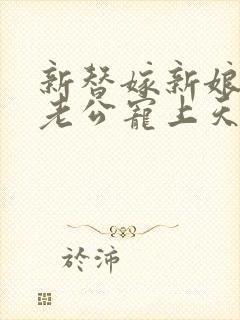 新替嫁新娘
老公寵上天
於沛